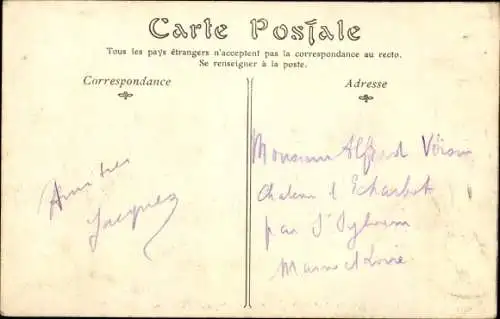 Carte Postale
Tous les pays étrangers n'acceptent pas la correspondance au recto.
Se renseigner à la poste.
Correspondance
Adresse
Amitiés
Jacques
Monsieur Alfred Voisin
Chateau d'Echarbot
par St Sylvain
Maine et Loire